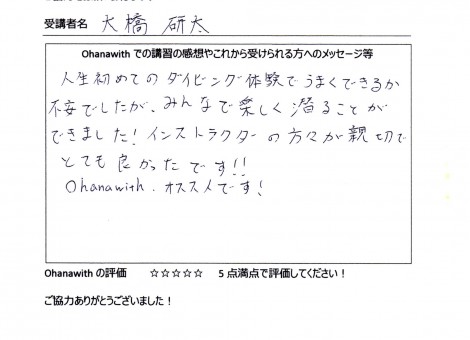 受講者名 大橋 研太
Ohanawith での講習の感想やこれから受けられる方へのメッセージ等
人生初めてのダイビング体験でうまくできるか
不安でしたが、みんなで楽しく潜ることが
できました！インストラクターの方々が親切で
とても良かったです！！
Ohanawith.オススメです！
Ohanawith の評価 ☆☆☆☆☆ 5 点満点で評価してください！
ご協力ありがとうございました！